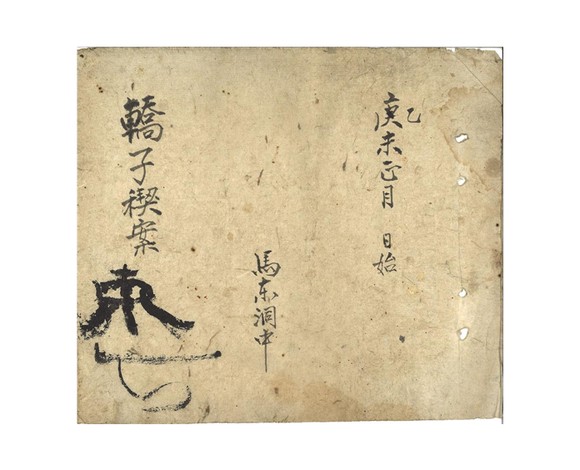 庚乙未正月 日始
馬东洞中
轎子稧案